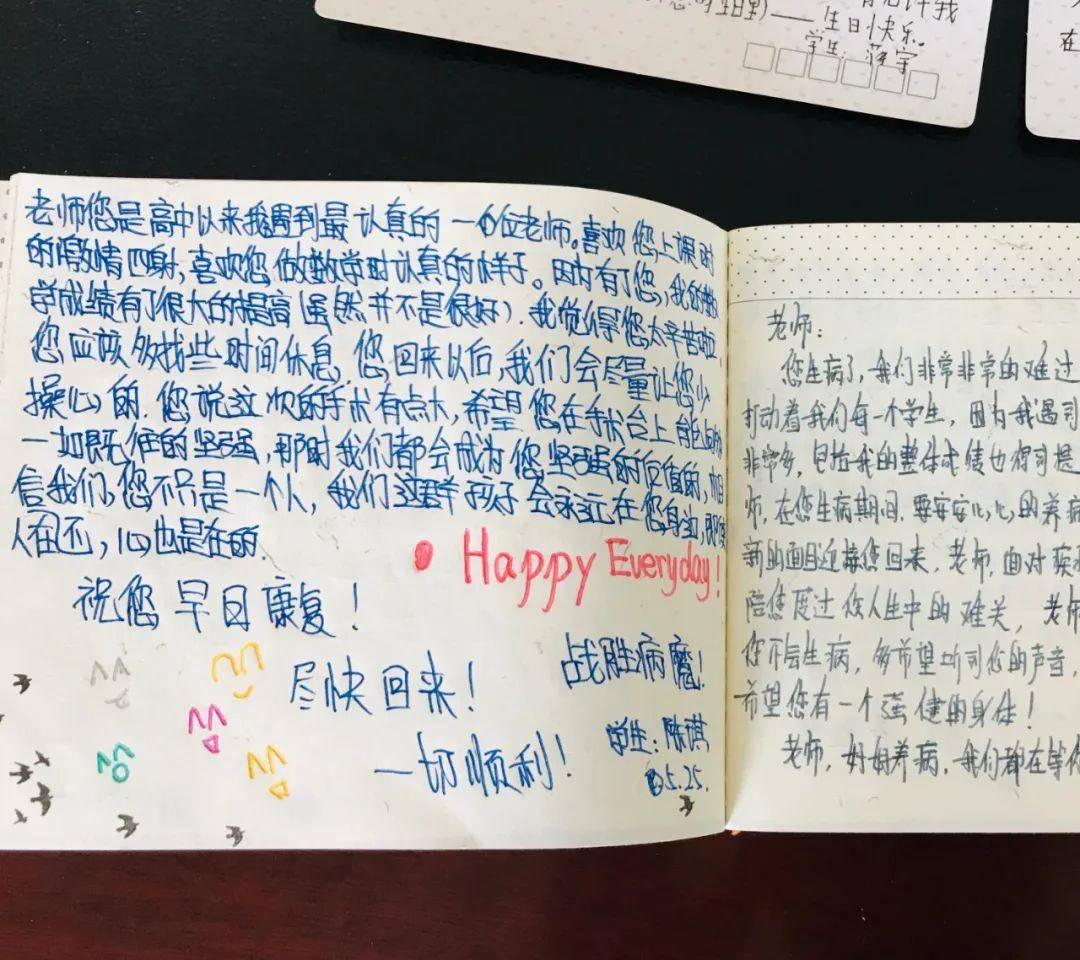 生日里)——生日快乐。
学生：
老师您是高中以来我遇到最认真的一位老师。喜欢您上课时
的激情四射，喜欢您做数学时认真的样子。因为有了您，我的数
学成绩有了很大的提高（虽然并不是很好）。我觉得您太辛苦啦，
您应该多找些时间休息，您回来以后，我们会尽量让您少
操心的。您说这次的手术有点大，希望您在手术台上能
一如既往的坚强，那时我们都会成为您坚强的后盾的，相
信我们，您不只是一个人，我们这群孩子会永远在您身边，即使
人在不，心也是在的。
Happy Everyday!
祝您早日康复！
尽快回来！
战胜病魔！
一切顺利！
学生：陈琪
5.25.
老师：
您生病了，我们非常非常的难过
打动着我们每一个学生，因为我遇到
非常多，包括我的整体成绩也得到提
师，在您生病期间，要安安心心的养病
新的面目迎接您回来，老师，面对疾
陪您度过您人生中的难关，老师
您不会生病，多希望听到您的声音，
希望您有一个强健的身体！
老师，好好养病，我们都在等你